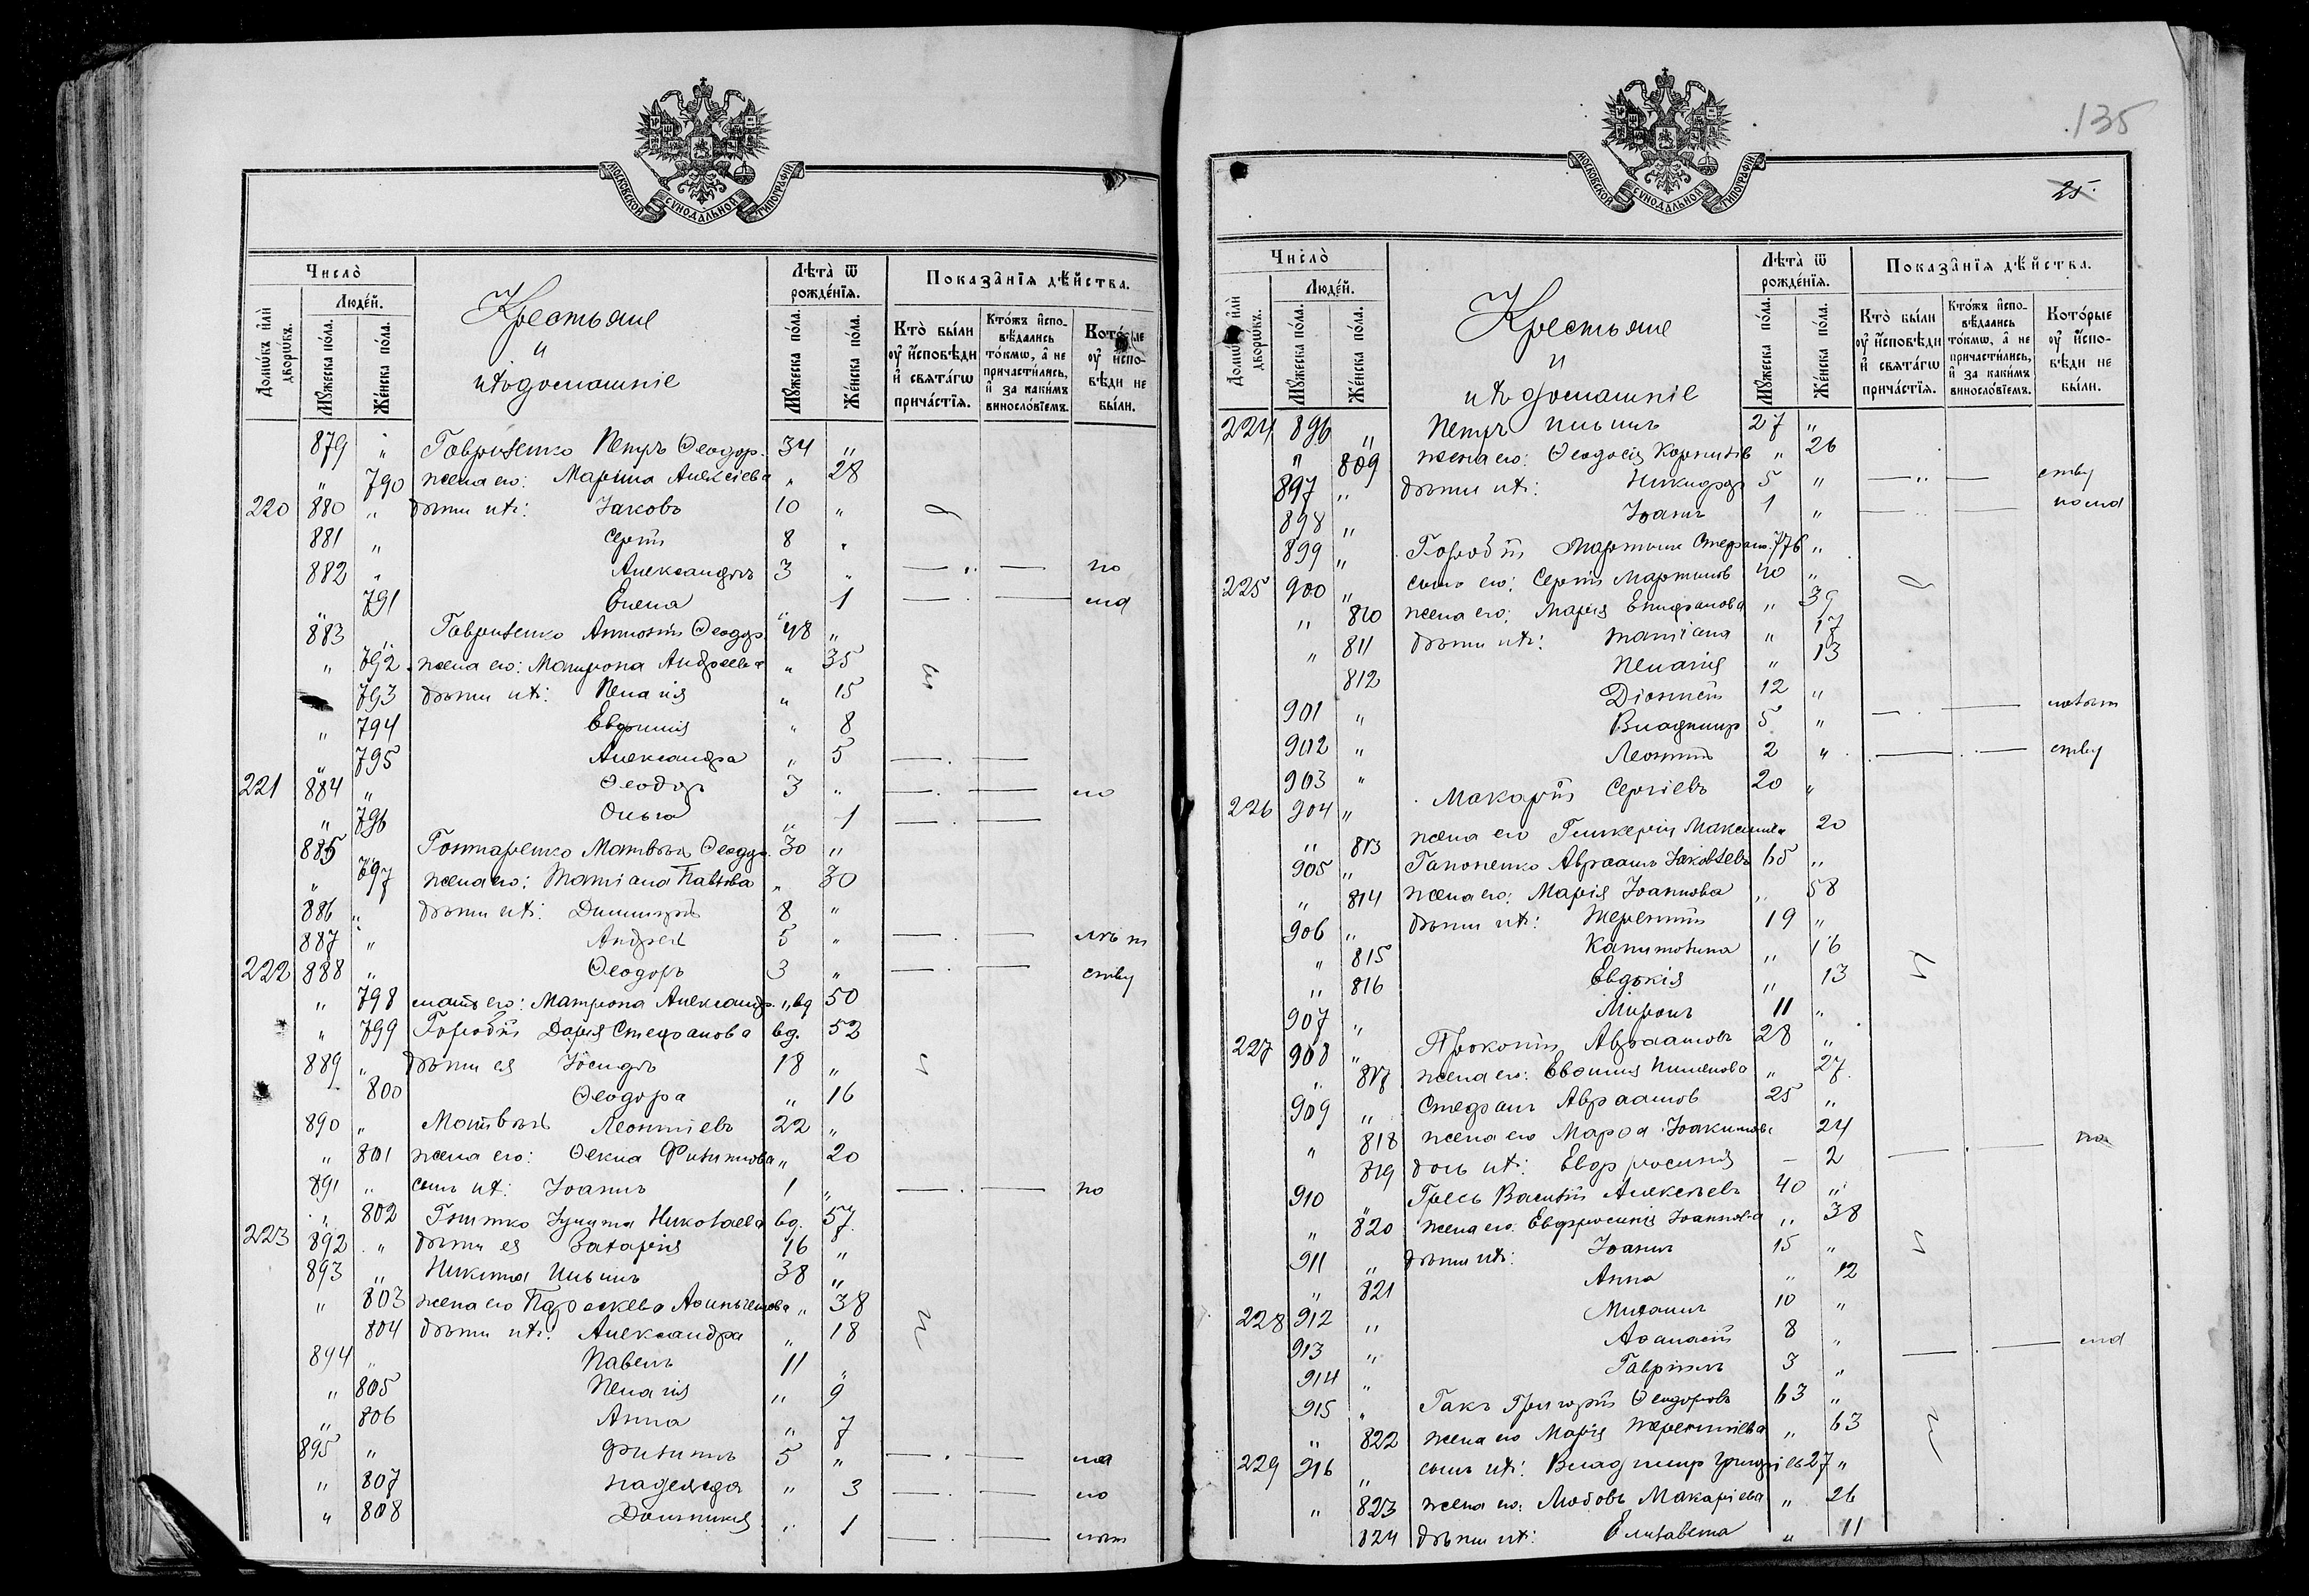 МОСКОВСКОЙ СУНОДАЛЬНОЙ ТИПОГРАФІИ
Число̀
Домѡкъ и҆лѝ дворѡкъ.
Люде́й.
Мꙋ́жеска по́ла.
Же́нска по́ла.
Крестьяне
и
ихъ домашніе
Лѣта̀ ѿ рожде́нїя.
Мꙋ́жеска по́ла.
Же́нска по́ла.
Показа̑нїя дѣ́йства.
Кто̀ бы́ли ᲂу҆ и҆́сповѣди и҆ свята́гѡ прича́стїя.
Кто́жъ и҆спо-вѣ́дались то́кмѡ, а҆ не причасти́лись, и҆ за каки́мъ винослѡ́вїемъ.
Кото́рые ᲂу҆ и҆́спо-вѣди не бы́ли.
879 " Гавриленко Петръ Ѳеодор. 34 "
" 790 жена его: Марина Алексіева " 28
220 880 " дѣти ихъ: Іаковъ 10 "
881 " Сергій 8 "
882 " Александръ 3 " — " — по
" 791 Елена 1 — . — мла
883 " Гавриленко Антоній Ѳеодор. 48 "
" 792 жена его: Матрона Андреева " 35
793 дѣти ихъ: Пелагія " 15
" 794 Евфимія " 8
" 795 Александра " 5 — . —
221 884 " Ѳеодоръ 3 " — . — ло
" 796 Ольга " 1 — . —
885 " Гонтаренко Матвѣй Ѳеодор. 30 "
" 797 жена его: Татіана Павлова " 30
886 " дѣти ихъ: Димитрій 8 "
887 " Андрей 5 " — . — лѣт
222 888 " Ѳеодоръ 3 " — . — ству
" 798 мать его: Матрона Александр. " вд 50
" 799 Горобій Дарія Стефанова вд. 52
889 " дѣти ея Іосифъ 18 "
800 Ѳеодора " 16
890 " Матвѣй Леонтіевъ 22 "
" 801 жена его: Ѳекла Филиппова " 20
891 " сынъ ихъ: Іоаннъ 1 " — . — по
" 802 Гнитко Іулита Николаева вд. 57
223 892 " дѣти ея Захарія 16 "
893 " Никита Ильинъ 38 "
" 803 жена его Параскева " 38
804 дѣти ихъ: Александра " 18
894 " Павелъ 11 "
" 805 Пелагія " 9
" 806 Анна " 7
895 " Филиппъ 5 " — . — мла
" 807 Надежда " 3 — . — ло
" 808 Домникія " 1 — . — лѣт
135
25
МОСКОВСКОЙ СУНОДАЛЬНОЙ ТИПОГРАФІИ
Число̀
Домѡкъ и҆лѝ дворѡкъ.
Люде́й.
Мꙋ́жеска по́ла.
Же́нска по́ла.
Крестьяне
и
ихъ домашніе
Лѣта̀ ѿ рожде́нїя.
Мꙋ́жеска по́ла.
Же́нска по́ла.
Показа̑нїя дѣ́йства.
Кто̀ бы́ли ᲂу҆ и҆́сповѣди и҆ свята́гѡ прича́стїя.
Кто́жъ и҆спо-вѣ́дались то́кмѡ, а҆ не причасти́лись, и҆ за каки́мъ винослѡ́вїемъ.
Кото́рые ᲂу҆ и҆́спо-вѣди не бы́ли.
224 896 " Петръ Ильинъ 27 "
" 809 жена его: Ѳеодосія Корнилів " 26
897 " дѣти ихъ: Никифоръ 5 " — " — ству
898 " Іоаннъ 1 " — . — по мла
899 " Горобій Мартинъ Стефанов. 76 "
225 900 " сынъ его: Сергій Мартиновъ 40 "
" 810 жена его: Марія Епифанова " 39
" 811 дѣти ихъ: Татіана " 17
812 Пелагія " 13
901 " Діонисій 12 "
902 " Владиміръ 5 " — . — лѣт
903 " Леонтій 2 " — . — ству
226 904 " Макарій Сергіевъ 20 "
" 813 жена его Гликерія Максимова 20
905 " Гапоненко Авраамъ Іаковлевъ 65 "
" 814 жена его: Марія Іоаннова " 58
906 " дѣти ихъ: Терентій 19 "
" 815 Капитолина " 16
" 816 Евдокія " 13
907 " Миронъ 11 "
227 908 " Прокопій Авраамовъ 28 "
" 817 жена его: Евфимія Пименова " 27
909 " Стефанъ Авраамовъ 25 "
" 818 жена его Марѳа Іоакимова 24
819 дочь ихъ: Евфросинія — 2 — . — по
910 " Гресь Василій Алексѣевъ 40 "
" 820 жена его: Евфросинія Іоаннова " 38
911 " дѣти ихъ: Іоаннъ 15 "
" 821 Анна " 12
228 912 " Михаилъ 10 "
913 " Аѳанасій 8 "
914 " Гавріилъ 3 " — . — мла
915 " Гакъ Григорій Ѳеодоровъ 63 "
" 822 жена его Марія Терентіева " 63
229 916 " сынъ ихъ: Владиміръ Григоріев 27 "
" 823 жена его: Любовь Макаріева " 26
824 дѣти ихъ: Елисавета " 11